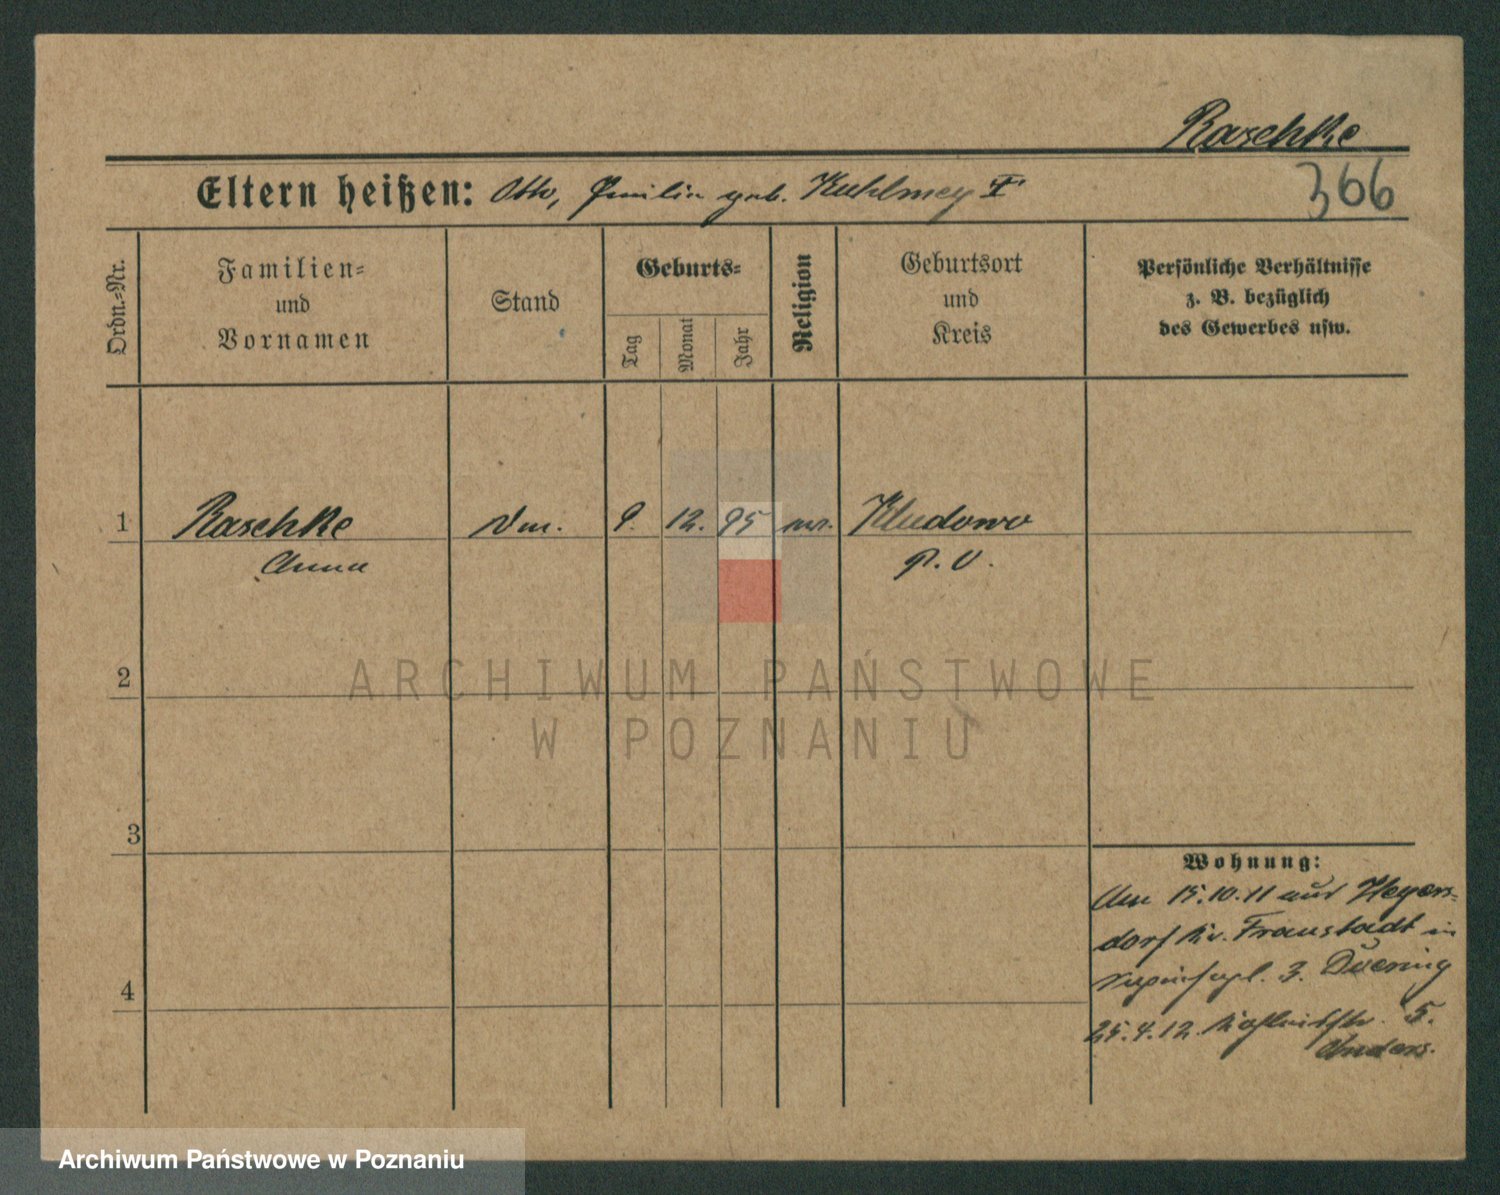 Raschke
366
Eltern heißen: Otto, Emilie geb. Kuhlmey
Ordn.=Nr.
Familien=
und
Vornamen
Stand
Geburts=
Tag
Monat
Jahr
Religion
Geburtsort
und
Kreis
Persönliche Verhältnisse
z. B. bezüglich
des Gewerbes usw.
1 Raschke 9. 12. 95 Kludowo
Anna P. O.
2
3
4
Wohnung:
Am 15.10.11 aus Heyers-
dorf Kr. Fraustadt in
3. Duering
25.4.12 5.
Anders.
ARCHIWUM PAŃSTWOWE
W POZNANIU
Archiwum Państwowe w Poznaniu